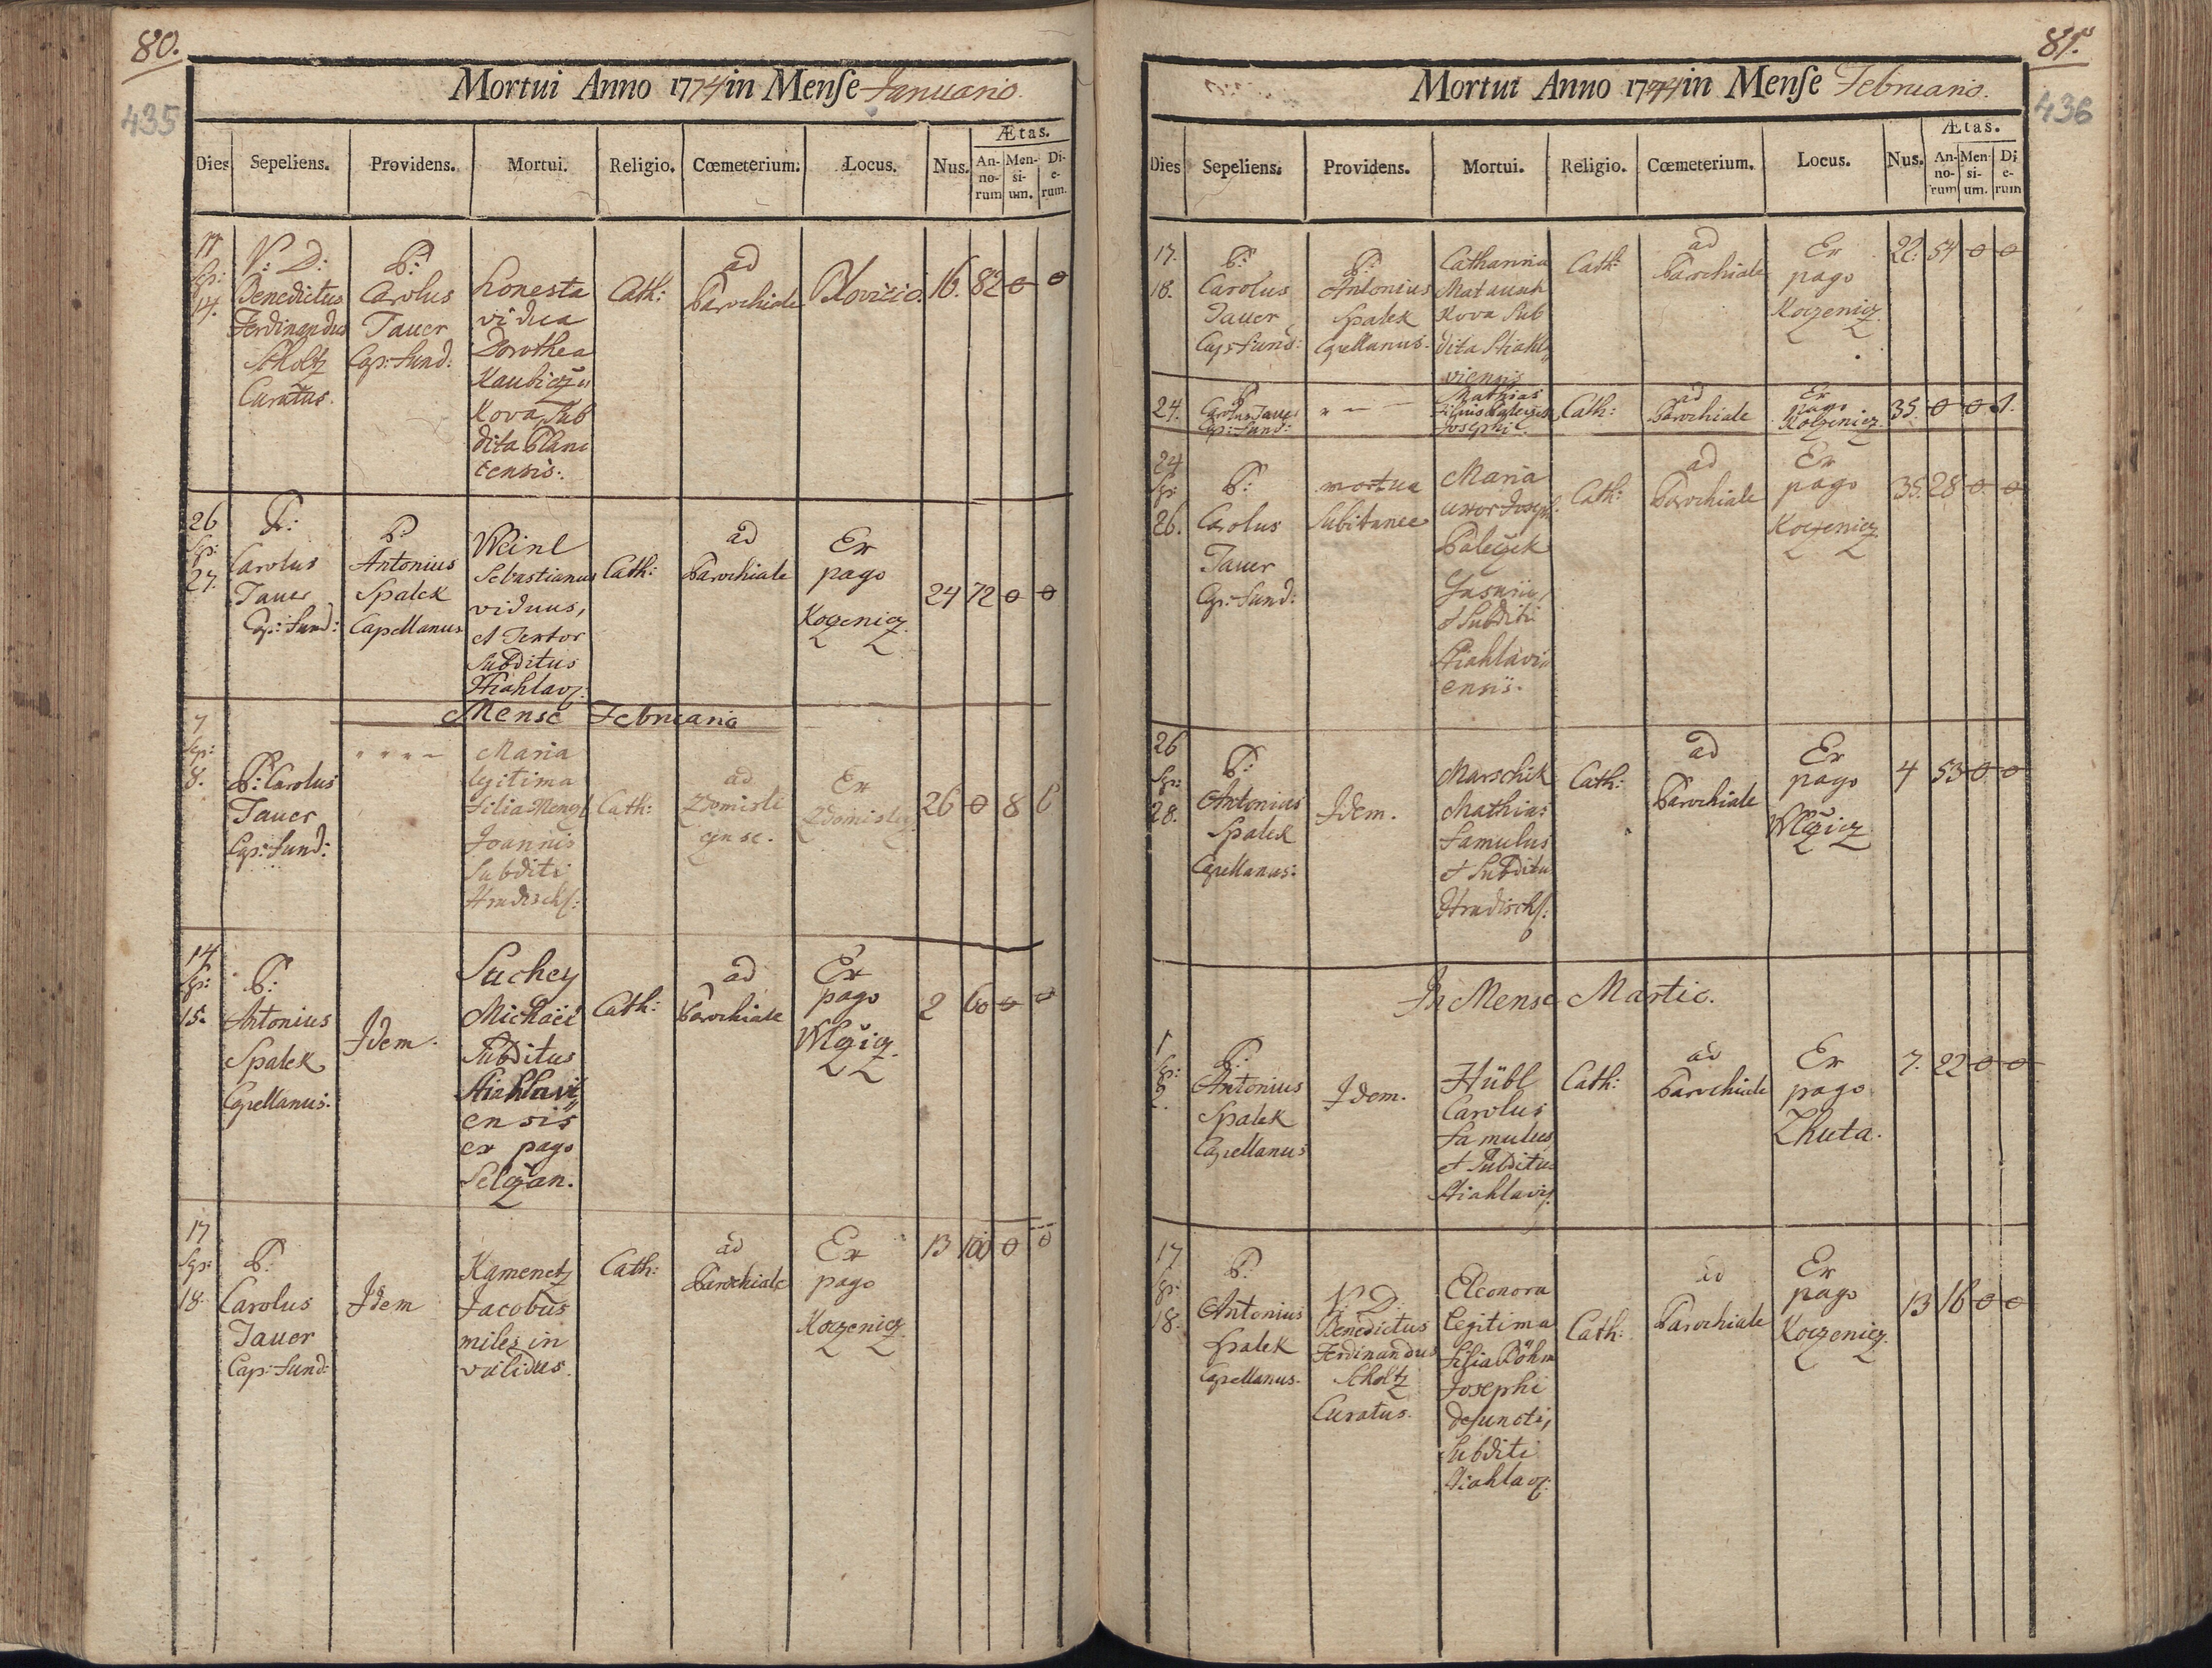 80.
435
Mortui Anno 1774 in Mense Januario.
Dies Sepeliens. Providens. Mortui. Religio. Cœmeterium. Locus. Nus. Ætas.
An-no-rum Men-si-um. Di-e-rum.
Sep:
14.
V: D:
Benedictus
Ferdinandus
Scholtz
Curatus.
P:
Carolus
Tauer
Cap: Fund:
honesta
vidua
Dorothea
Kova Sub
dita Plani
censis.
Cath:
ad
Parochiale
16. 82 0 0
26
Sep:
27.
P:
Carolus
Tauer
Cap: Fund:
P:
Antonius
Spalek
Capellanus
Weinl
Sebastianus
viduus,
et Textor
Subditus
Stiahlavz.
Cath:
ad
Parochiale
Ex
pago
Kozenicz.
24 72 0 0
Mense Februario
7
Sep:
8.
P: Carolus
Tauer
Cap: Fund:
Maria
legitima
Filia Mengl
Joannis
Subditi
Hradisch:
Cath:
ad
Ex
26 0 8
14
Sep:
15.
P:
Antonius
Spalek
Capellanus.
Idem.
Suchey
Michael
Subditus
Stiahlavi
ensis
ex pago
Selczan.
Cath:
ad
Parochiale
Ex
pago
Wlczicz.
2 60 0 0
17
Sep:
18.
P:
Carolus
Tauer
Cap: Fund:
Idem
Kamenetz
Jacobus
miles in
validus.
Cath:
ad
Parochiale
Ex
pago
Koczenicz.
13 100 0 0
81.
436
Mortui Anno 1774 in Mense Februario.
Dies Sepeliens. Providens. Mortui. Religio. Cœmeterium. Locus. Nus. Ætas.
An-no-rum Men-si-um. Di-e-rum
17.
18.
P:
Carolus
Tauer
Cap: Fund:
P:
Antonius
Spalek
Capellanus.
Catharina
Matausch
Kova Sub
dita Stiahla
viensis
Cath:
ad
Parochiale
Ex
pago
Koczenicz.
22. 54 0 0
24.
P:
Carolus Tauer
Cap: Fund:
Mathias
Filius Paleczek
Josephi.
Cath:
ad
Parochiale
Ex
pago
Koczenicz.
35. 0 0 1.
24
Sep:
26.
P:
Carolus
Tauer
Cap: Fund:
mortua
Subitanee
Maria
uxor Joseph:
Paleczek
et Subditi
Stiahlavi
ensis.
Cath:
ad
Parochiale
Ex
pago
Koczenicz.
35. 28 0 0
26
Sep:
28.
P:
Antonius
Spalek
Capellanus:
Idem.
Marschik
Mathias
Famulus
et Subditus
Hradisch:
Cath:
ad
Parochiale
Ex
pago
Wlczicz
4 53 0 0
In Mense Martio.
1
Sep:
2.
P:
Antonius
Spalek
Capellanus
Idem.
Hübl
Carolus
Famulus
et Subditus
Stiahlavz.
Cath:
ad
Parochiale
Ex
pago
Lhuta.
7. 22 0 0
17
Sep:
18.
P:
Antonius
Spalek
Capellanus.
V: D:
Benedictus
Ferdinandus
Scholtz
Curatus.
Eleonora
legitima
Filia Böhm
Josephi
defuncti,
Subditi
Stiahlavz.
Cath:
ad
Parochiale
Ex
pago
Koczenicz.
13 16 0 0